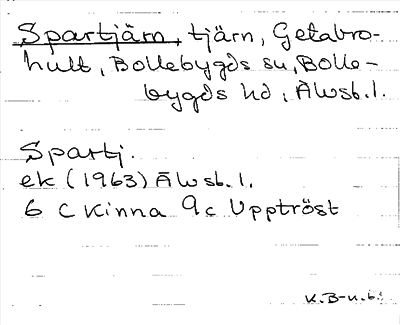 Spartjärn, tjärn, Getabro-
hult, Bollebygds sn, Bolle-
bygds hd, Älvsb. l.
Spartj.
ek (1963) Älvsb. l.
6 C Kinna 9c Upptröst
K. B-n. b.